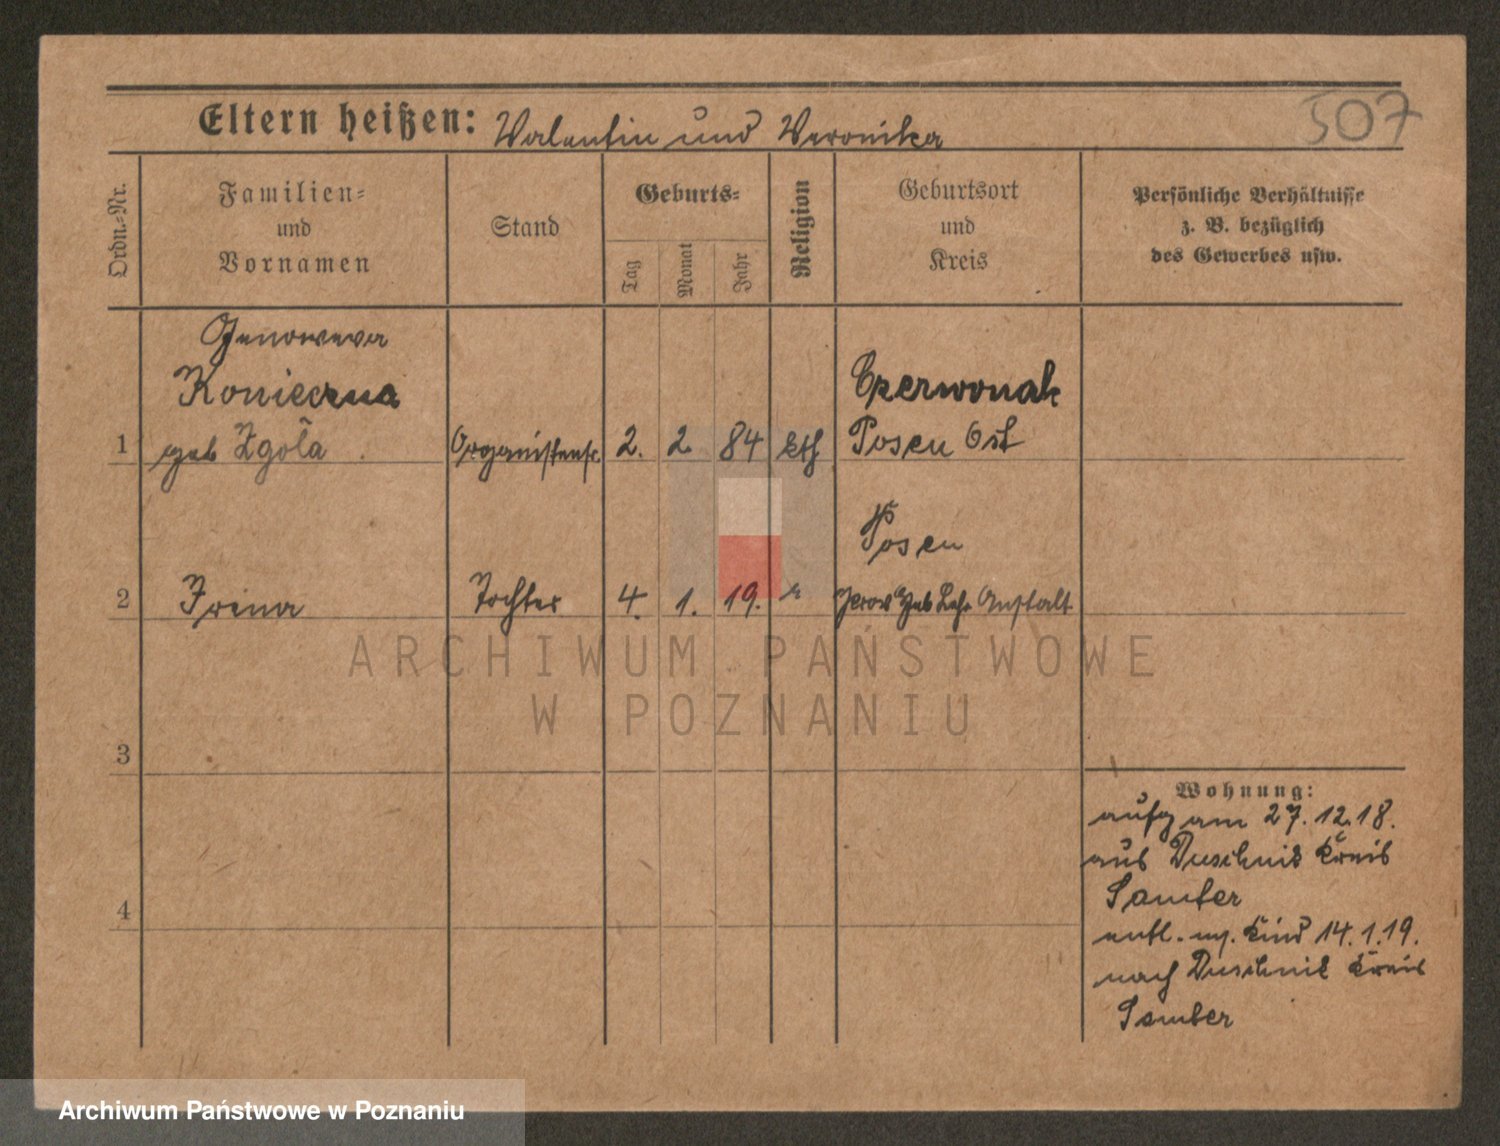 Eltern heißen: Valentin und Veronika
507
Ordn.-Nr.
Familien-
und
Vornamen
Stand
Geburts-
Tag
Monat
Jahr
Religion
Geburtsort
und
Kreis
Persönliche Verhältnisse
z. B. bezüglich
des Gewerbes usw.
Genoweva
Konieczna
1 geb Zgoła Organistenfr. 2. 2. 84 kth
Czerwonak
Posen Ost
Posen
2 Irena Tochter 4. 1. 19. " Prov Heb Lehr Anstalt
3
4
Wohnung:
aufg am 27.12.18.
aus Duschnik Kreis
Samter
entl. m. Kind 14.1.19.
nach Duschnik Kreis
Samter
ARCHIWUM PAŃSTWOWE
W POZNANIU
Archiwum Państwowe w Poznaniu